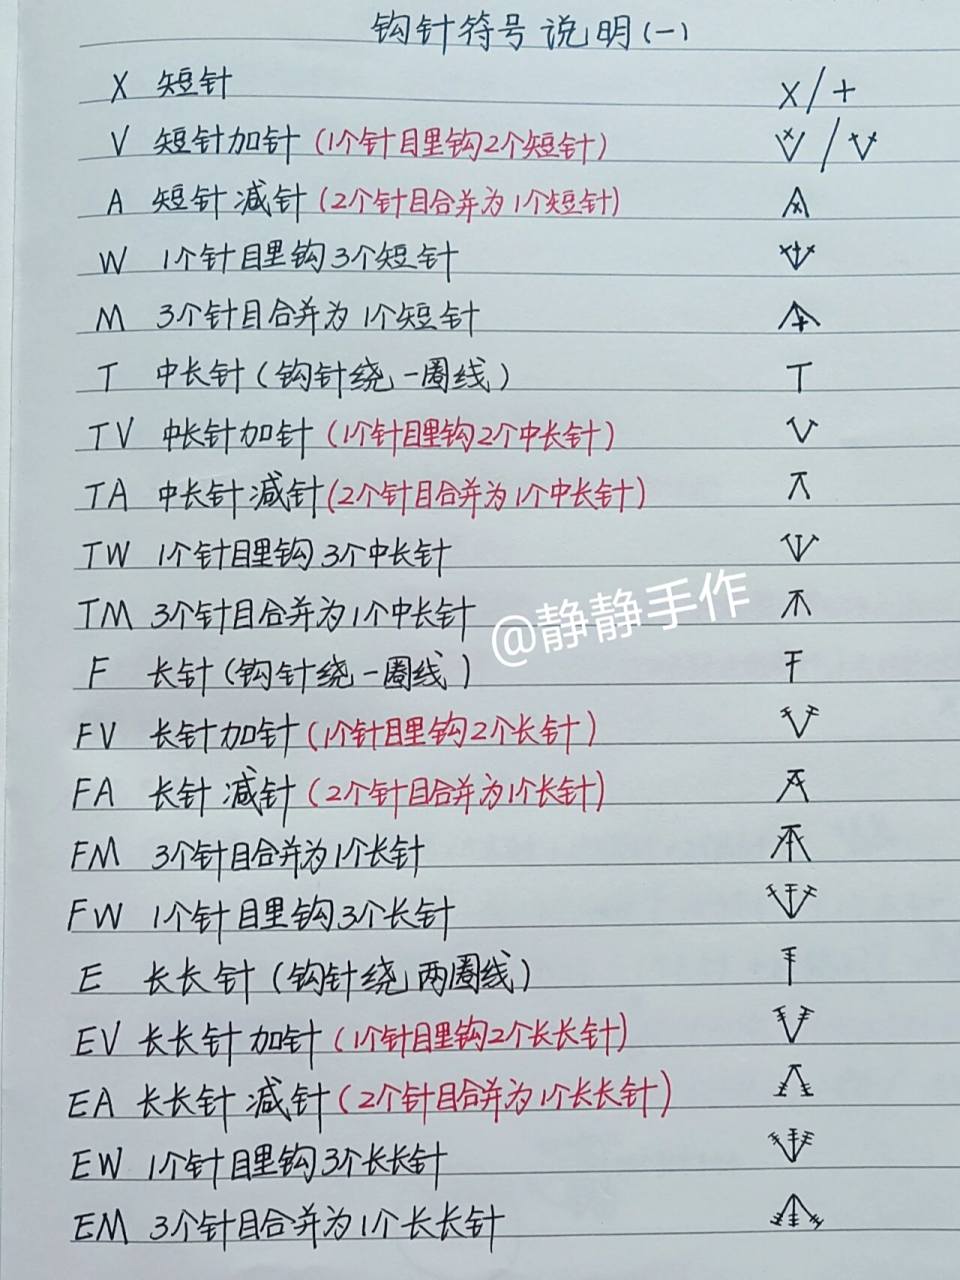 钩针符号说明(一)
X 短针 X/+
V 短针加针(1个针目里钩2个短针)
A 短针减针(2个针目合并为1个短针)
W 1个针目里钩3个短针
M 3个针目合并为1个短针
T 中长针(钩针绕一圈线) T
TV 中长针加针(1个针目里钩2个中长针)
TA 中长针减针(2个针目合并为1个中长针)
TW 1个针目里钩3个中长针
TM 3个针目合并为1个中长针
@静静手作
F 长针(钩针绕一圈线)
FV 长针加针(1个针目里钩2个长针)
FA 长针减针(2个针目合并为1个长针)
FM 3个针目合并为1个长针
FW 1个针目里钩3个长针
E 长长针(钩针绕两圈线)
EV 长长针加针(1个针目里钩2个长长针)
EA 长长针减针(2个针目合并为1个长长针)
EW 1个针目里钩3个长长针
EM 3个针目合并为1个长长针